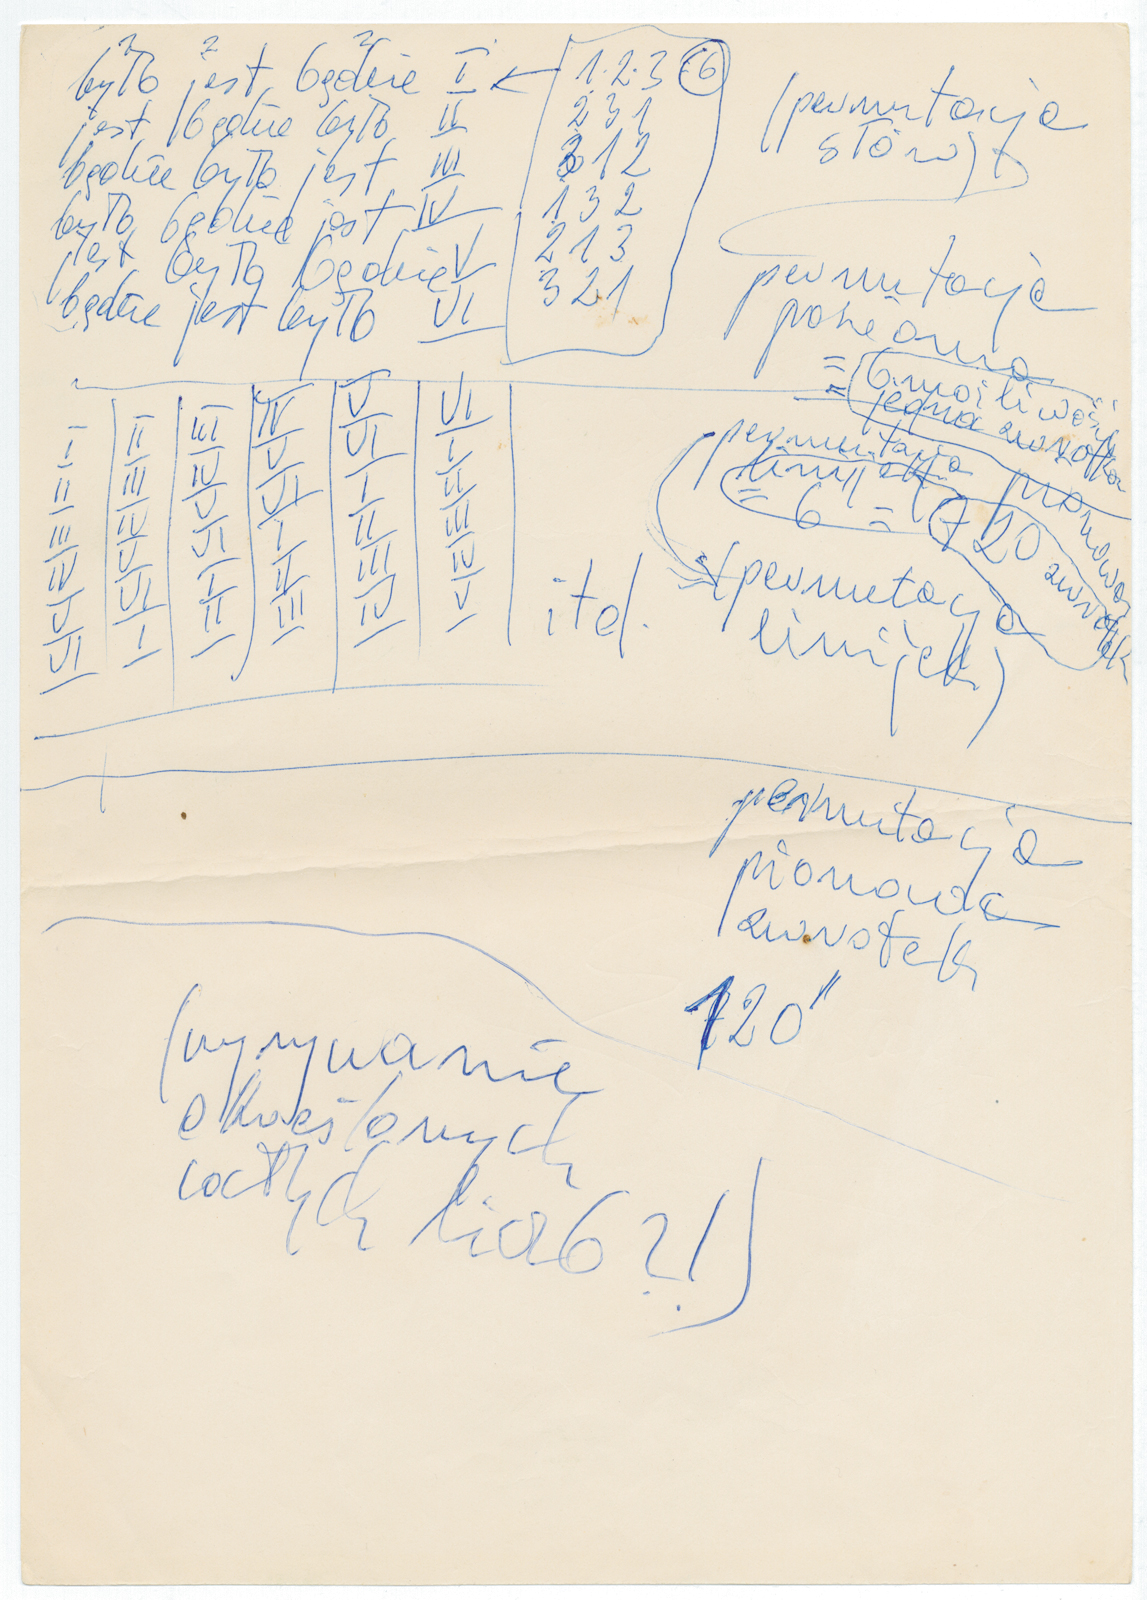 było jest będzie I
jest będzie było II
będzie było jest III
było będzie jest IV
jest było będzie V
będzie jest było VI
1.2.3 (6)
2 3 1
3 1 2
1 3 2
2 1 3
3 2 1
(permutacja
słów)
permutacja
pozioma
= 6 możliwości
= jedna zwrotka
permutacja pionowa
linijek
= 6 = 720 zwrotek
(permutacja
linijek)
I II III IV V VI
II III IV V VI I
III IV V VI I II
itd.
permutacja
pionowa
zwrotek
720"
(wyrywanie
określonych
całych liczb?!)